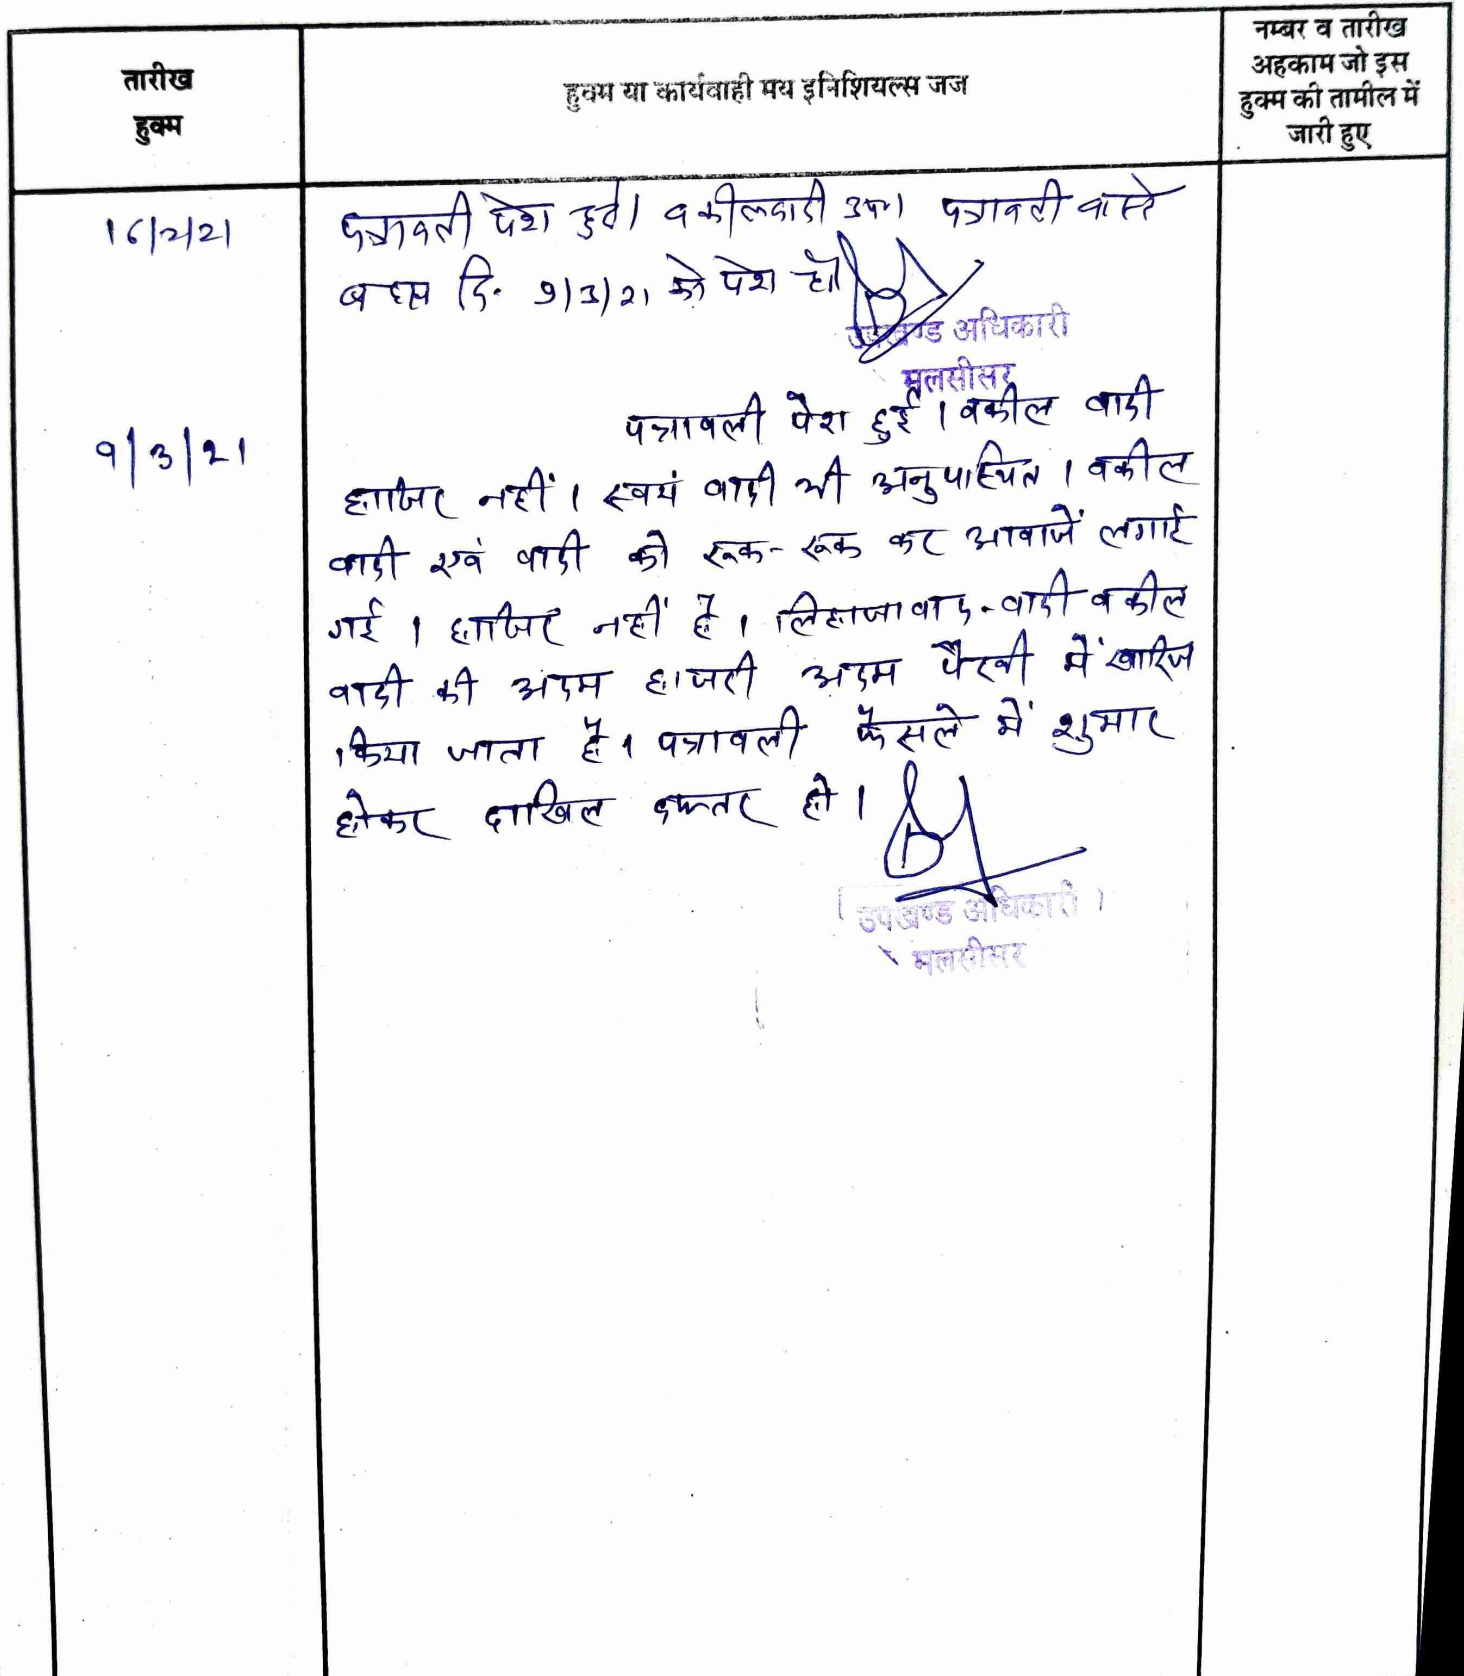 तारीख
हुक्म
हुक्म या कार्यवाही मय इनिशियल्स जज
नम्बर व तारीख
अहकाम जो इस
हुक्म की तामील में
जारी हुए
16/2/21
पत्रावली पेश हुई। वकील वादी उप। पत्रावली वास्ते
बहस दि. 9/3/21 को पेश हो
उपखण्ड अधिकारी
मलसीसर
9/3/21
पत्रावली पेश हुई। वकील वादी
हाजिर नहीं। स्वयं वादी भी अनुपस्थित। वकील
वादी एवं वादी को रूक-रूक कर आवाजें लगाई
गई। हाजिर नहीं है। लिहाजा वाद-वादी वकील
वादी की अदम हाजरी अदम पैरवी में खारिज
किया जाता है। पत्रावली फैसले में शुमार
होकर दाखिल दफ्तर हो।
उपखण्ड अधिकारी
मलसीसर